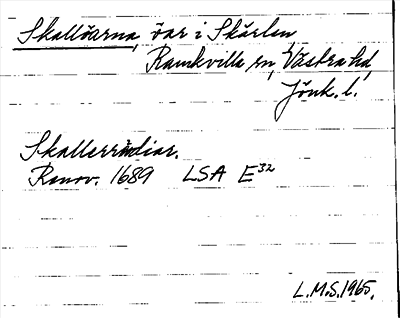 Skallöarna, öar i Skärlen
Ramkvilla sn, Västra hd,
Jönk. l.
Skallerrödiar.
Renov. 1689 LSA E³²
L.M.S. 1965.